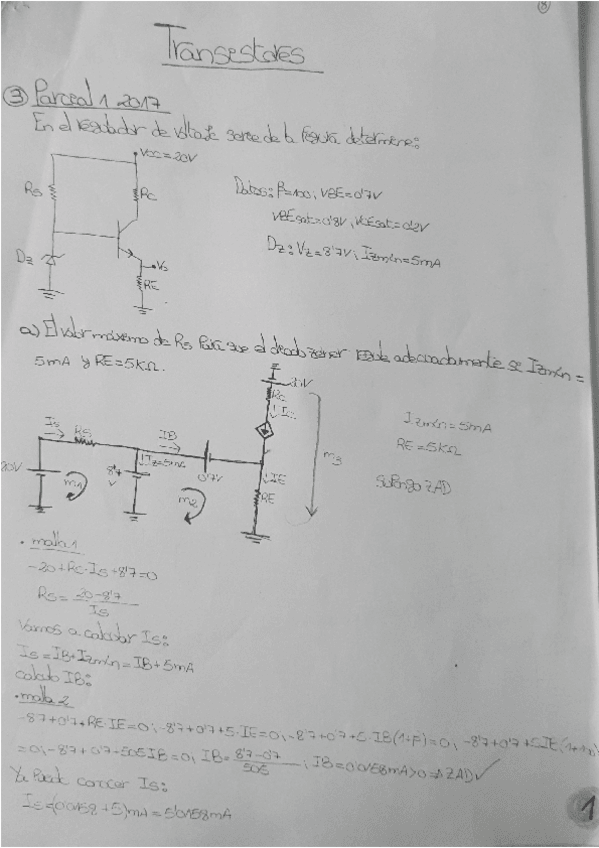 8
Transistores
③ Parcial 1 2017
En el regulador de voltaje serie de la figura determine:
VCC = 20V
RS
RC
Datos: β=100, VBE=0'7V
VBEsat=0'8V, VCEsat=0'2V
DZ
DZ: VZ=8'7V; IZmín=5mA
VS
RE
a) El valor máximo de RS para que el diodo zener regule adecuadamente si IZmín =
5mA y RE=5KΩ.
20V
RC
IC
IS
RS
IB
IZmín=5mA
RE=5KΩ
m3
20V
8'7
V
IZ=5mA
0'7V
IE
RE
m1
m2
Supongo ZAD
· malla 1
-20+RS·IS+8'7=0
RS= 20-8'7
IS
Vamos a calcular IS:
IS=IB+IZmín=IB+5mA
calculo IB:
· malla 2
-8'7+0'7+RE·IE=0; -8'7+0'7+5·IE=0; -8'7+0'7+5·IB(1+β)=0; -8'7+0'7+5
=0; -8'7+0'7-505IB=0; IB= 8'7-0'7
505
; IB=0'0158mA>0⇒ZAD✓
Ya puedo conocer IS:
IS=(0'0158+5)mA=5'0158mA
1